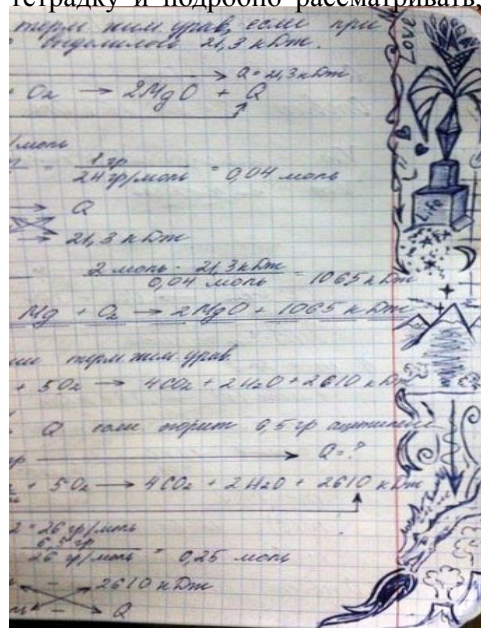 тетрадку и подробно рассматривать,
терм. хим. урав, если при
выделилось 21,3 кДж.
Q = 21,3 кДж
+ O₂ → 2MgO + Q
/моль
1 гр
24 гр/моль = 0,04 моль
→ Q
→ 21,3 кДж
2 моль · 21,3 кДж
0,04 моль = 1065 кДж
Mg + O₂ → 2MgO + 1065 кДж
терм. хим. урав.
+ 5O₂ → 4CO₂ + 2H₂O + 2610 кДж
Q если горит 6,5 гр ацетилена
Q = ?
+ 5O₂ → 4CO₂ + 2H₂O + 2610 кДж
2 = 26 гр/моль
6,5 гр
26 гр/моль = 0,25 моль
– 2610 кДж
– Q
Love
Life